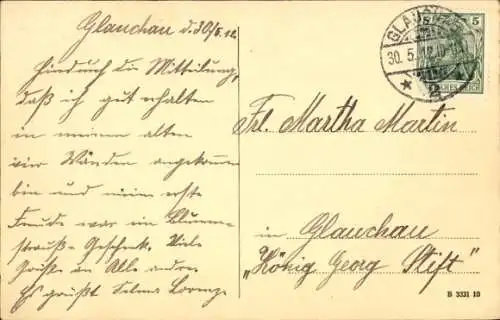 Glauchau d. 30/5. 12.
Hiedurch die Mitteilung,
daß ich gut erhalten
in meinen alten
vier Wänden angekommen
bin und meine erste
Freude war ein Blumen-
strauß-Geschenk. Viele
Grüße an Alle andren
Es grüßt Selma Lorenz.
GLAUCHAU
30. 5. 12. 10-
* 2
5
DEUTSCHES REICH
Frl. Martha Martin
in Glauchau
„König Georg Stift"
B 3331 10